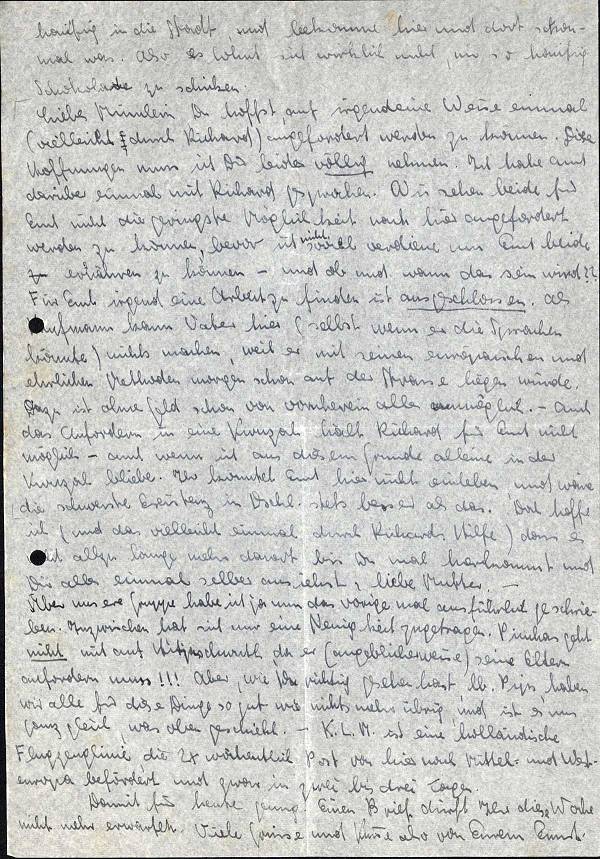 häufig in die Stadt und bekomme hier und dort schon-
mal was. Also es lohnt sich wirklich nicht, mir so häufig
Schokolade zu schicken.
Liebes Mimilein Du hoffst auf irgendeine Weise einmal
(vielleicht durch Richard) angefordert werden zu können. Diese
Hoffnungen muss ich Dir leider völlig nehmen. Ich habe auch
darüber einmal mit Richard gesprochen. Wir sehen beide für
Euch nicht die geringste Möglichkeit nach hier angefordert
werden zu können, bevor ich nicht soviel verdiene um Euch beide
zu ernähren zu können - und ob und wann das sein wird??
Für Euch irgend eine Arbeit zu finden ist ausgeschlossen. Als
aufmann kann Vater hier (selbst wenn er die Sprachen
könnte) nichts machen, weil er mit seinen europäischen und
ehrlichen Methoden morgen schon auf der Strasse liegen würde.
Dazu ist ohne Geld schon von vornherein alles unmöglich. - Auch
das Anfordern in eine Kwuzah hält Richard für Euch nicht
möglich - auch wenn ich aus diesem Grunde alleine in der
Kwuzah bliebe. Ihr könntet Euch hier nicht einleben und wäre
die schwerste Existenz in Dschl. stets besser als das. Doch hoffe
ich (und das vielleicht einmal durch Richards Hilfe) dass es
nicht allzu lange mehr dauert bis Du mal herkommst und
Dir alles einmal selber ansiehst, liebe Mutter. -
Über unsere Gruppe habe ich ja nun das vorige mal ausführlich geschrie-
ben. Inzwischen hat sich nur eine Neuigkeit zugetragen. Pinchas geht
nicht mit auf da er (angeblicherweise) seine Eltern
anfordern muss!!! Aber, wie Du richtig gesehen hast, lb. Pips, haben
wir alle für diese Dinge so gut wie nichts mehr übrig und ist es uns
ganz gleich, was oben geschieht. - K.L.M. ist eine holländische
Flugzeuglinie die 2x wöchentlich Post von hier nach Mittel- und West-
europa befördert und zwar in zwei bis drei Tagen.
Damit für heute genug. Einen Brief dürft Ihr diese Woche
nicht mehr erwarten. Viele Grüsse und Küsse also von Eurem